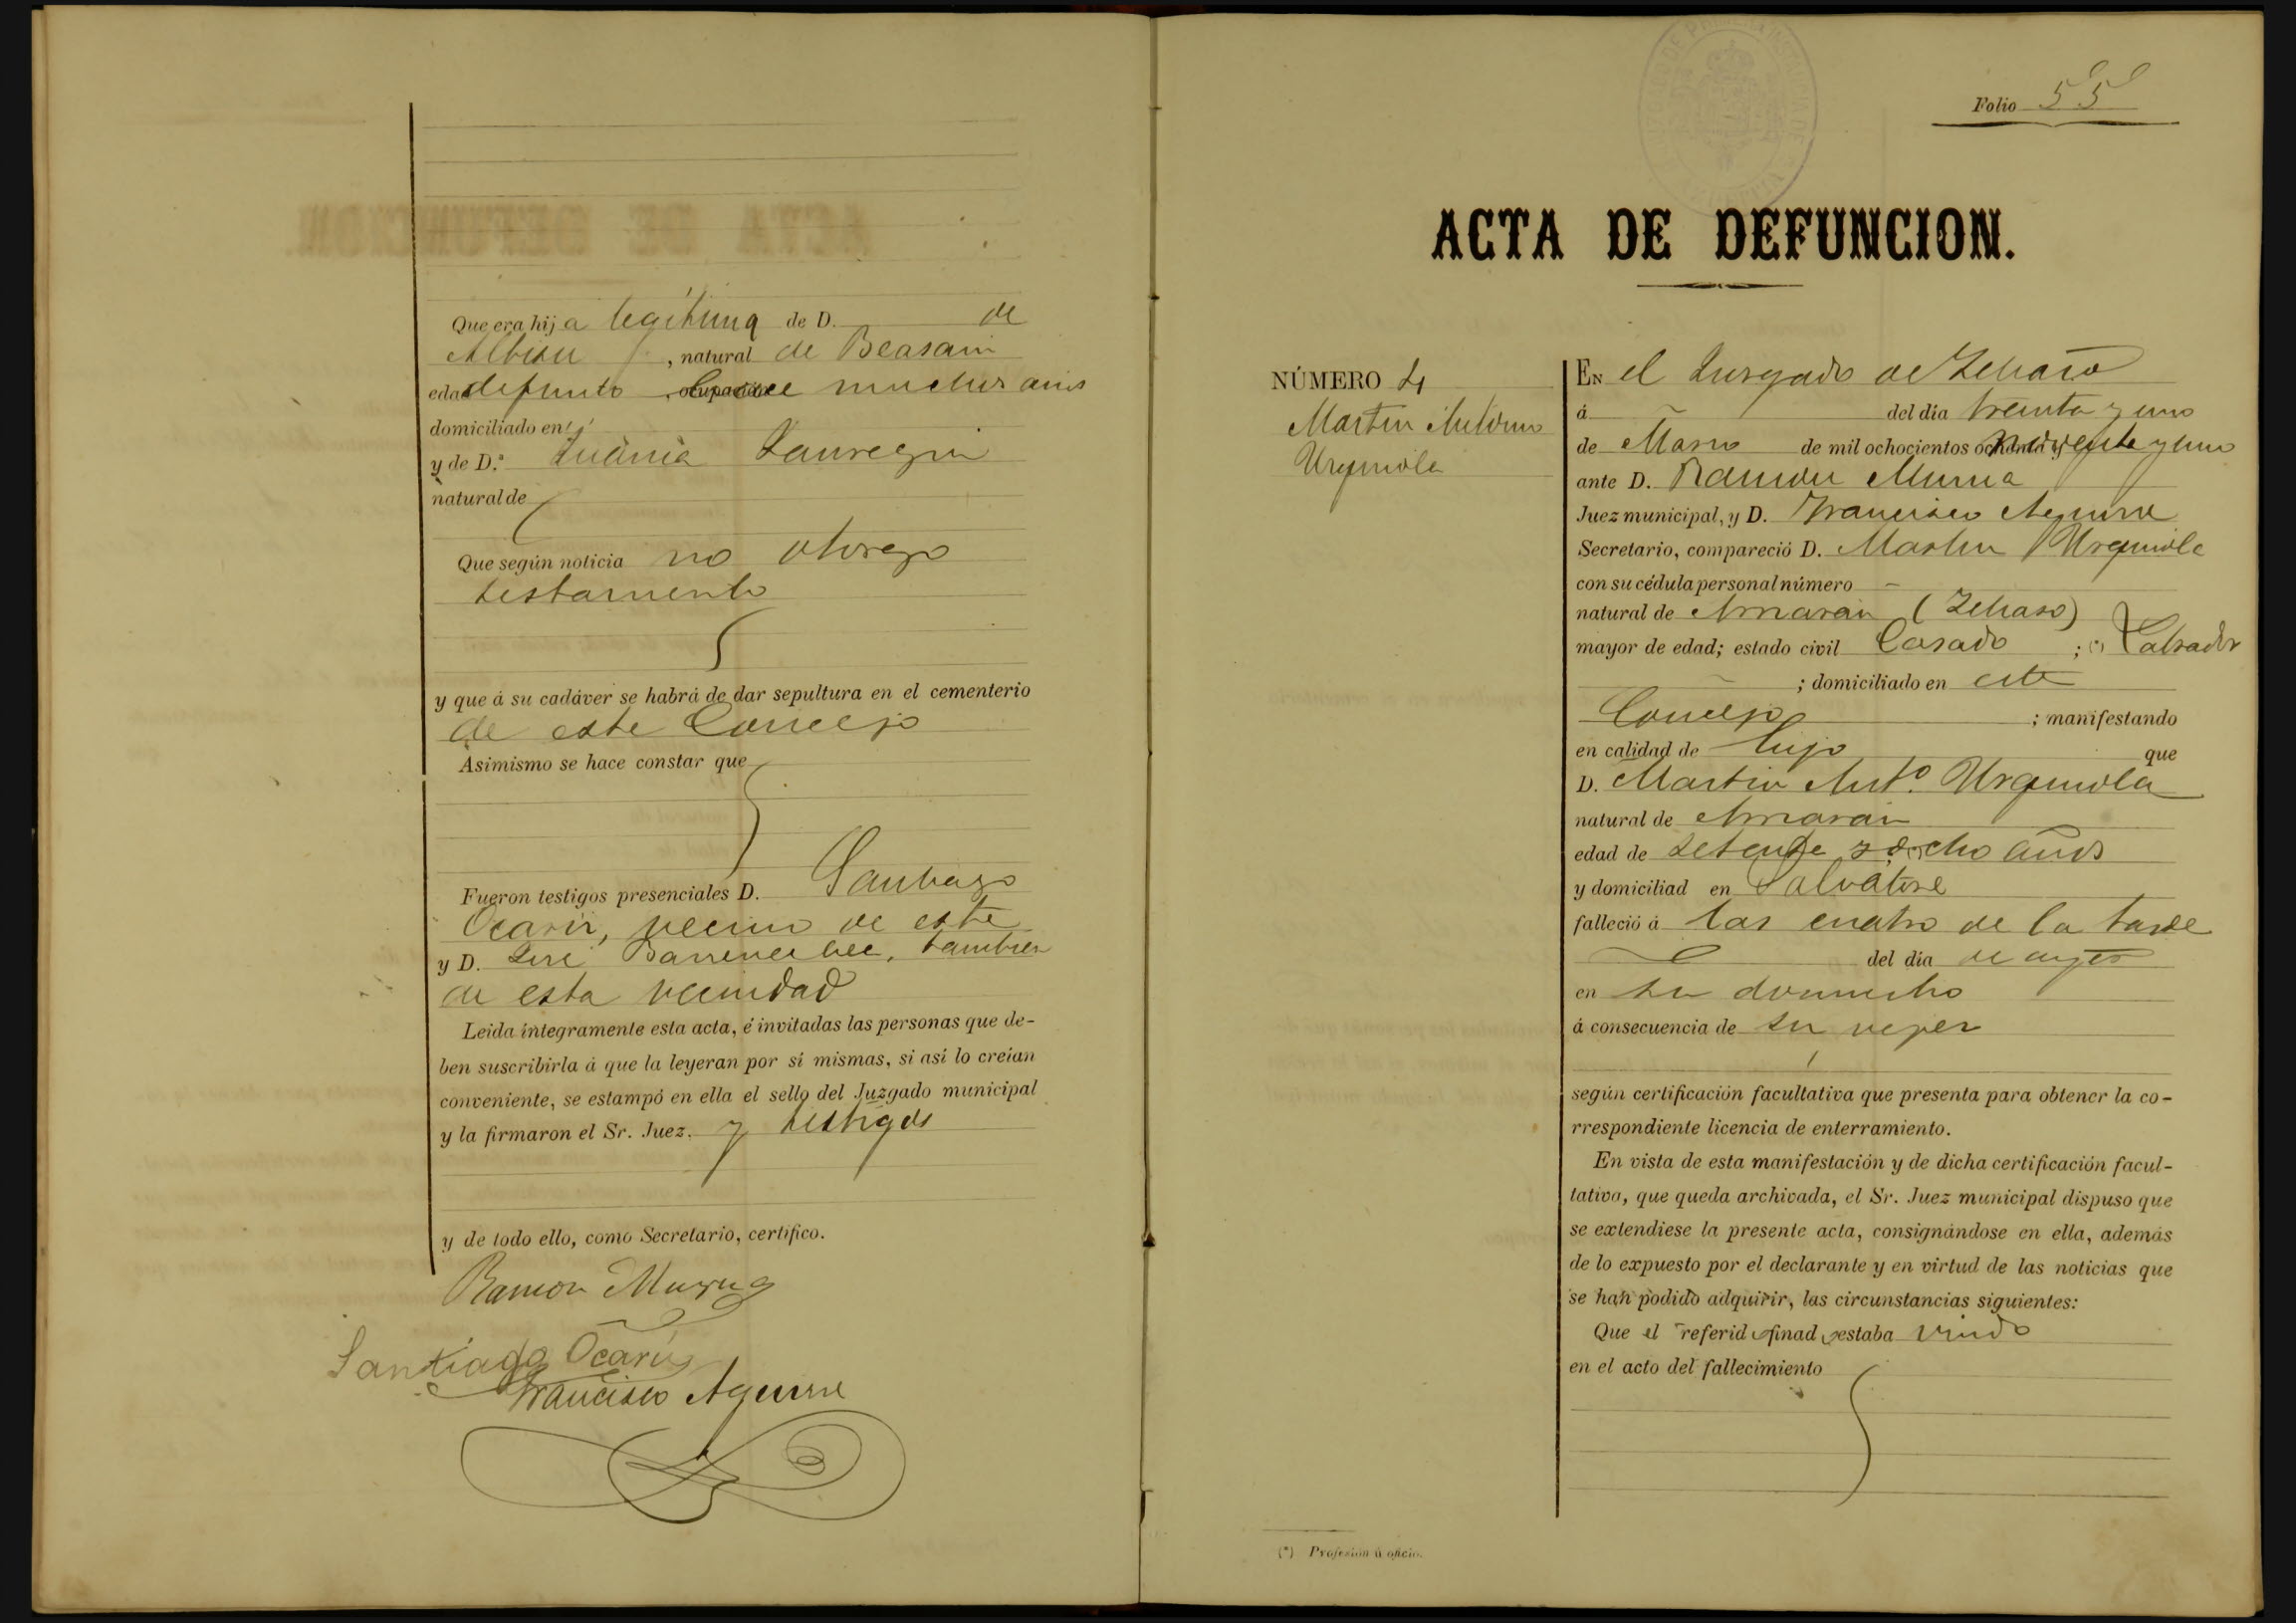 Que era hija legitima de D. de
Albisu, natural de Beasain
edad defunto, ocupación hace muchos años
domiciliado en
y de D.ª Juana Jauregui
natural de
Que según noticia no otorgo
testamento
y que á su cadáver se habrá de dar sepultura en el cementerio
de este Concejo
Asimismo se hace constar que
Fueron testigos presenciales D. Santiago
Ocariz, vecino de este
y D. José Barrenechee, tambien
de esta vecindad
Leida íntegramente esta acta, é invitadas las personas que de-
ben suscribirla á que la leyeran por sí mismas, si así lo creían
conveniente, se estampó en ella el sello del Juzgado municipal
y la firmaron el Sr. Juez, y testigos
y de todo ello, como Secretario, certifico.
Ramon Murua
Santiago Ocariz
Francisco Aguirre
Folio 55
ACTA DE DEFUNCION.
NÚMERO 4
Martin Antonio
Urquiola
EN el Jusgado de
á del día treinta y uno
de Marso de mil ochocientos ochenta y noventa y uno
ante D. Ramon Murua
Juez municipal, y D. Francisco Aguirre
Secretario, compareció D. Martin Urquiola
con su cédula personal número
natural de
mayor de edad; estado civil Casado ; (*) Labrador
; domiciliado en este
Concejo ; manifestando
en calidad de hijo que
D. Martin Ant.º Urquiola
natural de
edad de setenta y ocho años
y domiciliad en Salvatore
falleció á las cuatro de la tarde
del día de ayer
en su domicilio
á consecuencia de su vejez
según certificación facultativa que presenta para obtener la co-
rrespondiente licencia de enterramiento.
En vista de esta manifestación y de dicha certificación facul-
tativa, que queda archivada, el Sr. Juez municipal dispuso que
se extendiese la presente acta, consignándose en ella, además
de lo expuesto por el declarante y en virtud de las noticias que
se han podido adquirir, las circunstancias siguientes:
Que el referido finado estaba viudo
en el acto del fallecimiento
(*) Profesión ú oficio.